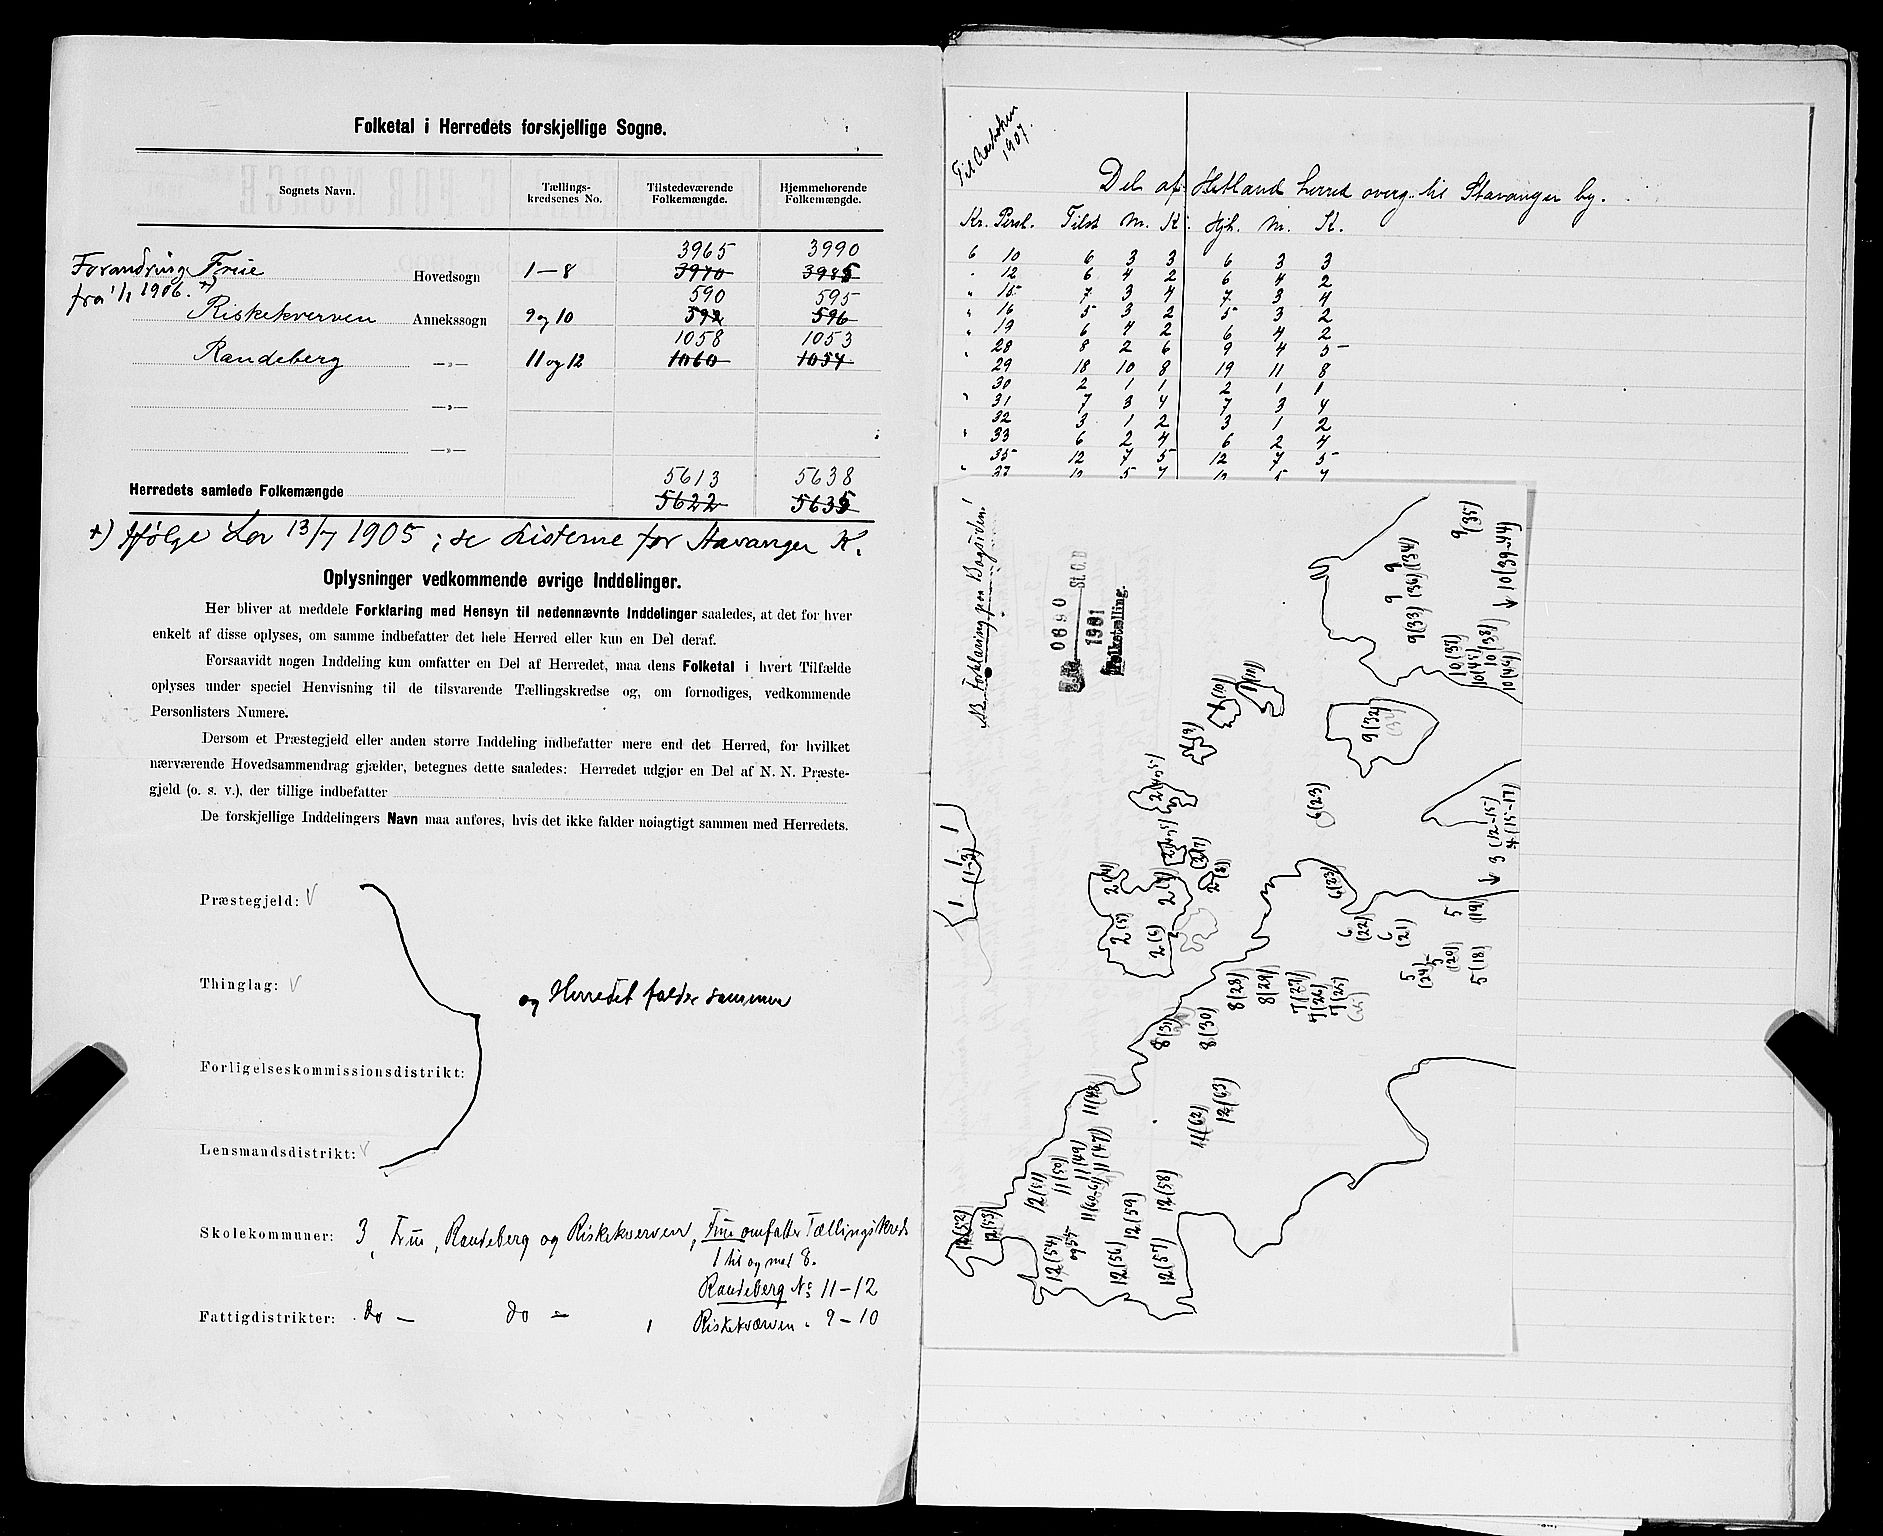 Folketal i Herredets forskjellige Sogne.
Sognets Navn. Tællings-kredsenes No. Tilstedeværende Folkemængde. Hjemmehørende Folkemængde.
3965 3990
Forandring Frue Hovedsogn 1-8 3970 3985
fra 1/1 1906. *) 590 595
Riskekverven Annekssogn 9 og 10 592 596
1058 1053
Randeberg —»— 11 og 12 1060 1054
—»—
—»—
5613 5638
Herredets samlede Folkemængde 5622 5635
*) Ifølge Lov 13/7 1905; se Listerne for Stavanger K.
Oplysninger vedkommende øvrige Inddelinger.
Her bliver at meddele Forklaring med Hensyn til nedennævnte Inddelinger saaledes, at det for hver
enkelt af disse oplyses, om samme indbefatter det hele Herred eller kun en Del deraf.
Forsaavidt nogen Inddeling kun omfatter en Del af Herredet, maa dens Folketal i hvert Tilfælde
oplyses under speciel Henvisning til de tilsvarende Tællingskredse og, om fornødiges, vedkommende
Personlisters Numere.
Dersom et Præstegjeld eller anden større Inddeling indbefatter mere end det Herred, for hvilket
nærværende Hovedsammendrag gjælder, betegnes dette saaledes: Herredet udgjør en Del af N. N. Præste-
gjeld (o. s. v.), der tillige indbefatter
De forskjellige Inddelingers Navn maa anføres, hvis det ikke falder nøiagtigt sammen med Herredets.
Præstegjeld:
Thinglag:
og Herredet falder sammen
Forligelseskommissionsdistrikt:
Lensmandsdistrikt:
Skolekommuner: 3, Frue, Randeberg og Riskekverven, Frue omfatter Tællingskreds
1 til og med 8.
Randeberg No 11-12
Fattigdistrikter: do — do — Riskekværven " 9-10
1907.
Del af Hetland herred overg. til Stavanger by.
Kr. Persl. Tilst M. K. Hjh. M. K.
6 10 6 3 3 6 3 3
" 12 6 4 2 6 4 2
" 15 7 3 4 7 3 4
" 16 5 3 2 5 3 2
" 19 6 4 2 6 4 2
" 28 8 2 6 9 4 5
29 18 10 8 19 11 8
30 2 1 1 2 1 1
" 31 7 3 4 7 3 4
32 3 1 2 3 1 2
" 33 6 2 4 6 2 4
35 12 7 5 12 7 5
NB. Forklaring paa Bagsiden!
0890 St.C.B.
Folketælling.
9(35)
9(34)
9(36)
9(33)
10(39-44)
10(37)
10(45)
10(38)
9(32)
1(10)
1(11)
6(23)
3(12-15)
4(15-17)
(1-3)
2(4)
2(5)
2(6)
2(8)
6(23)
6(22)
6(21)
5(19)
5(20)
5(18)
5(24)
8(28)
8(29)
7(27)
7(26)
7(25)
8(31)
8(30)
11(48)
11(62)
12(63)
11(47)
11(49)
11(50)
12(51)
11(60-61)
12(59)
12(58)
12(52)
12(53)
12(54)
12(56)
12(57)